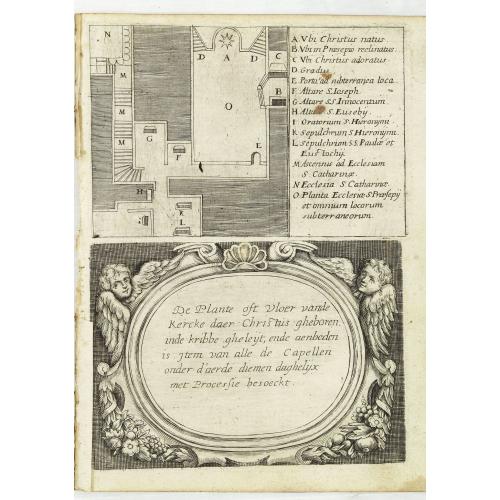 A Vbi Christus natus.
B Vbi in Præsepio reclinatus.
C Vbi Christus adoratus.
D Gradus
E Porta ad subterranea loca.
F Altare S. Ioseph.
G Altare S.S Innocentum.
H Altare S. Eusebij.
I Oratorium S. Hieronymi.
K Sepulchrum S. Hieronymi.
L Sepulchrum S.S. Paulæ et
Eustochij.
M Ascensus ad Ecclesiam
S. Catharinæ.
N Ecclesia S. Catharinæ.
O Planta Ecclesiæ S. Præsepij
et omnium locorum
subterraneorum.
N
M
M
M
G
F
H
I
K
L
D A D
O
C
B
E
De Plante oft Vloer vande
Kercke daer Christus gheboren.
inde kribbe gheleijt, ende aenboden
is jtem van alle de Capellen
onder d'aerde diemen daghelijx
met Processie besoeckt.